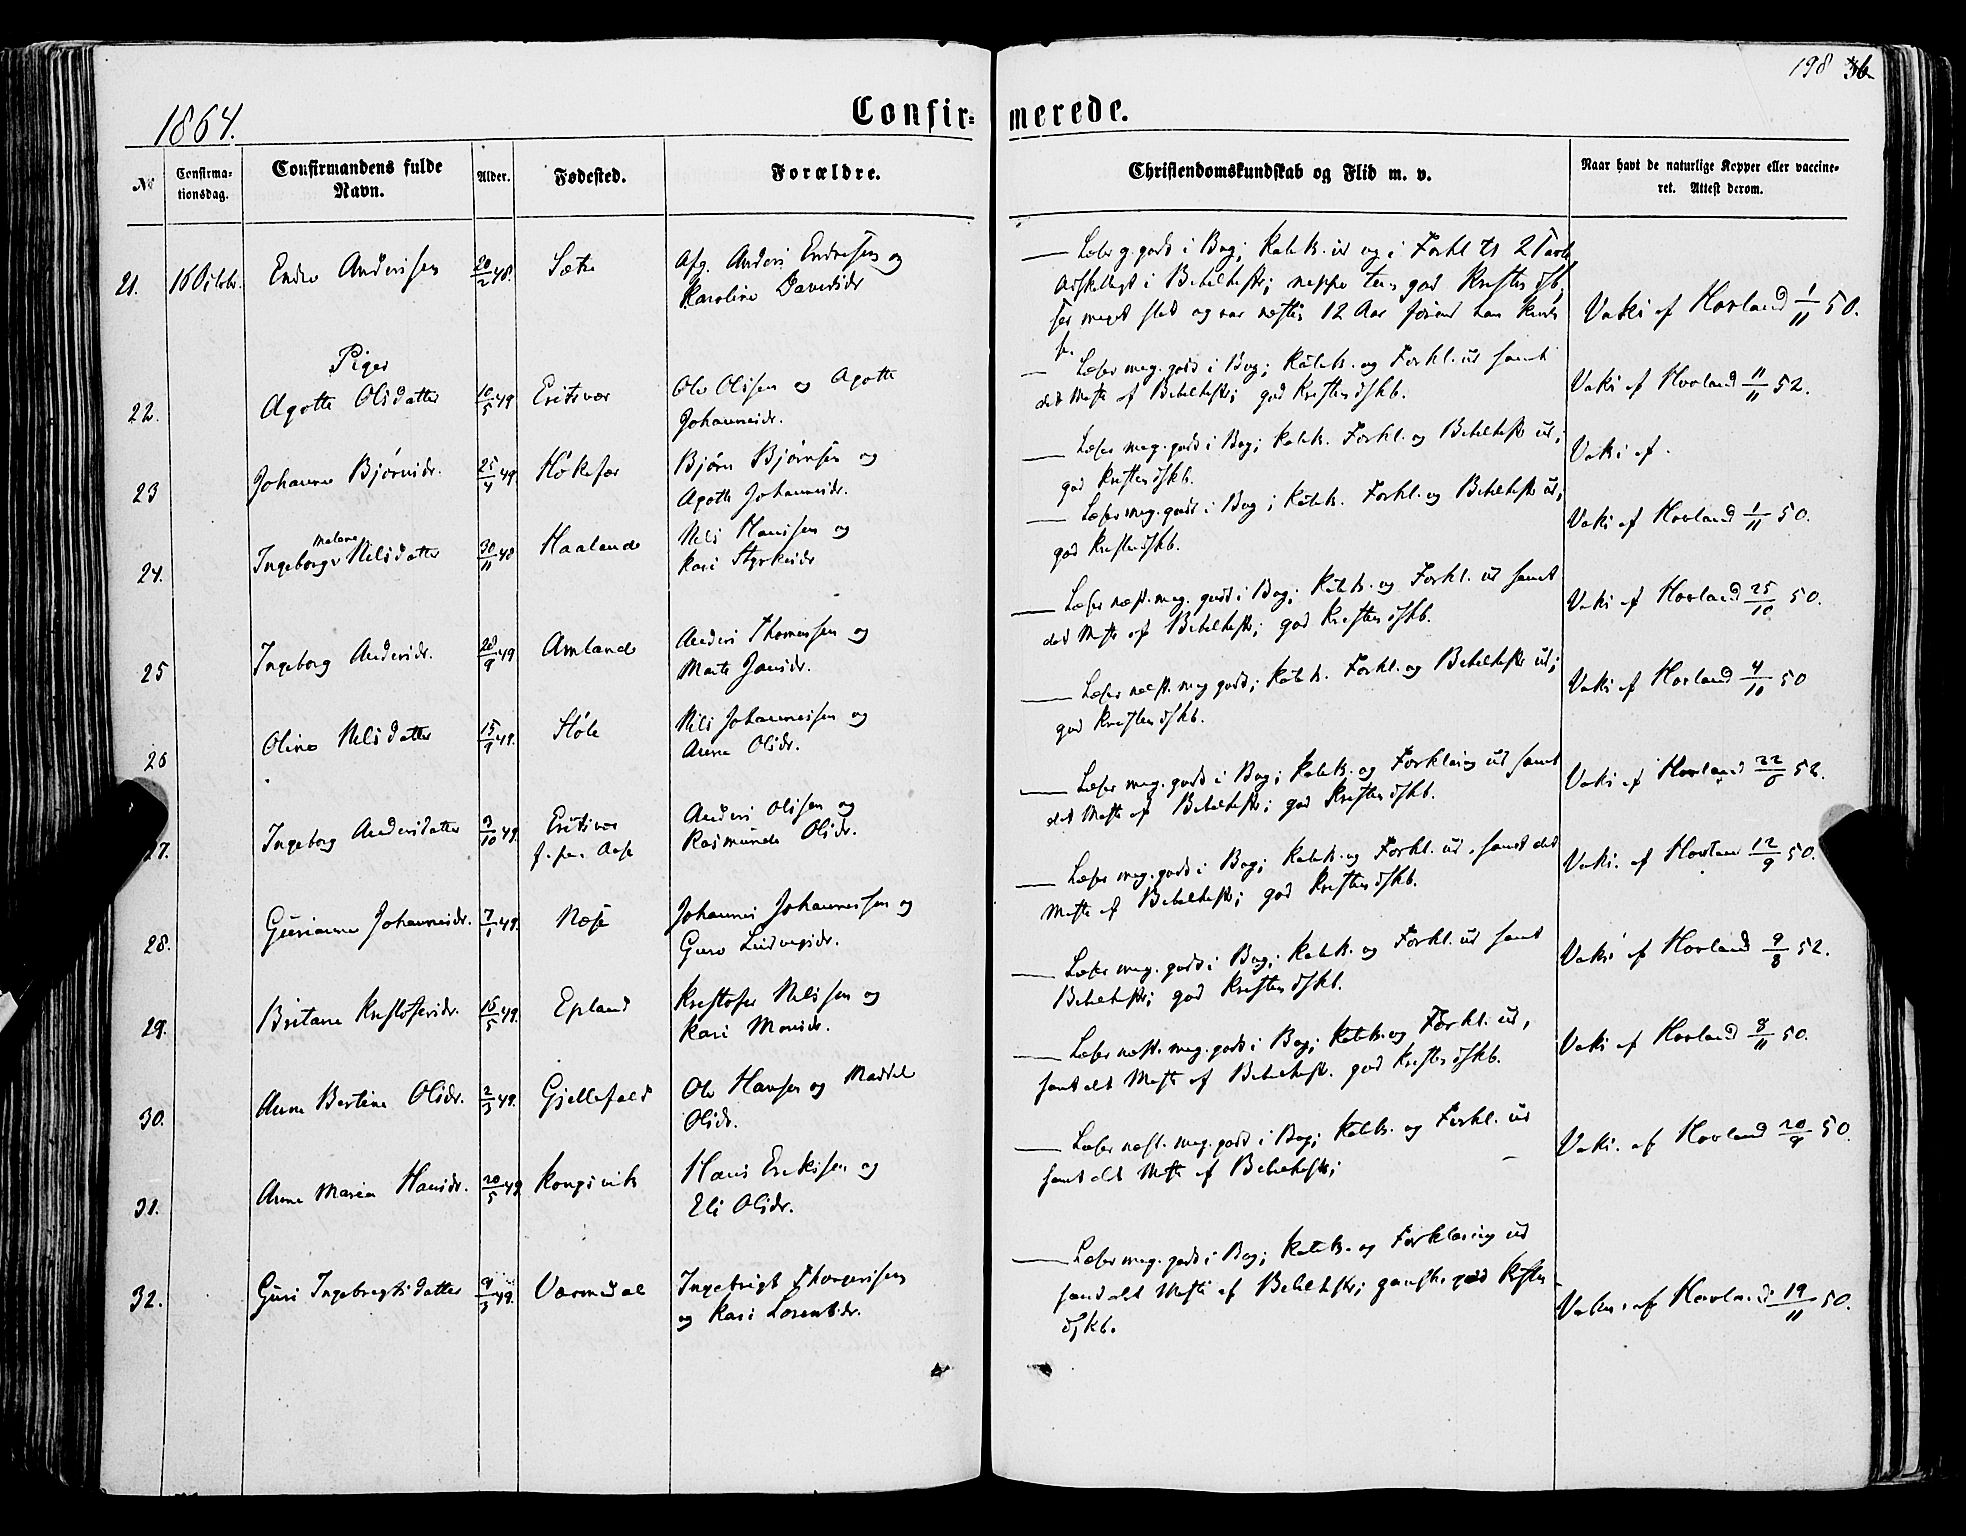 198 36
1864.
Confir- merede.
No
Confirma-
tionsdag.
Confirmandens fulde
Navn.
Alder.
Fødested.
Forældre.
Christendomskundskab og Flid m. v.
Naar havt de naturlige Kopper eller vaccine-
ret. Attest derom.
21. 16 Octobr. Endre Andersen 20/2 48. Sætre Afg. Anders Endresen og
Karoline Davidsdr
Læser g. godt i Bog; Katek. ud og i Forkl. til 2 Part
Adskelligt i Bibelhist; neppe god Kristendskb.
meget slet og var næsten 12 Aar førend han kunde
Vaks. af Hovland 1/11 50.
Piger
22. Agotte Olsdatter 10/5 49 Eritsvær Ole Olsen og Agotte
Johannesdr.
Læser meg. godt i Bog; Katek. og Forkl. ud samt
det Meste af Bibelhist; god Kristendskb.
Vaks. af Hovland 11/11 52.
23 Johanne Bjørnsdr. 25/4 49 Høkefær Bjørn Bjørnsen og
Agotte Johannesdr.
Læser meg. godt i Bog; Katek. Forkl. og Bibelhist ud;
god Kristendskb.
Vaks. af.
24. Ingeborg Malene Nilsdatter 30/11 48 Haaland Nils Hanssen og
Kari Styrkesdr
Læser meg. godt i Bog; Katek. Forkl. og Bibelhist ud;
god Kristendskb.
Vaks. af Hovland 1/11 50.
25 Ingeborg Andersdr. 28/9 49 Amland Anders Thomassen og
Marta Jansdr.
Læser næst. meg. godt i Bog; Katek. og Forkl. ud samt
det Meste af Bibelhist; god Kristendskb.
Vaks. af Hovland 25/10 50.
26 Oline Nilsdatter 15/9 49. Støle Nils Johannessen og
Anna Olsdr.
Læser næst. meg godt; Katek. Forkl. og Bibelhist ud;
god Kristendskb.
Vaks. af Hovland 4/10 50
27. Ingeborg Andersdatter 3/10 49. Eritsvær
f. paa Aase
Anders Olsen og
Rasmunda Olsdr.
Læser meg. godt i Bog; Katek. og Forklaring ud samt
det Meste af Bibelhist; god Kristendskb.
Vaks. af Hovland 22/6 52.
28. Gurianna Johannesdr. 7/1 49. Næse Johannes Johannessen og
Guro Ludvigsdr.
Læser meg. godt i Bog; Katek. og Forkl. ud, samt det
Meste af Bibelhist; god Kristendskb.
Vaks. af Hovland 12/9 50.
29. Britane Kristofersdr. 15/5 49. Epland Kristofer Nilssen og
Kari Monsdr.
Læser meg. godt i Bog; Katek. og Forkl. ud samt
Bibelhist; god Kristendskb.
Vaks. af Hovland 9/8 52.
30. Anna Bertine Olsdr. 2/3 49. Gjellefald Ole Hansen og Maddel
Olsdr.
Læser næst. meg. godt i Bog; Katek. og Forkl. ud,
samt det Meste af Bibelhist. god Kristendskb.
Vaks. af Hovland 8/11 50.
31. Anne Maria Hansdr. 20/5 49 Kongsvik Hans Eriksen og
Eli Olsdr.
Læser næst. meg. godt i Bog; Katek. og Forkl. ud
samt det Meste af Bibelhist;
Vaks. af Hovland 20/9 50.
32. Guri Ingebregtsdatter 9/3 49. Varmedal Ingebrigt Thorgersen
og Kari Lorentsdr.
Læser meg. godt i Bog; Katek. og Forklaring ud
samt det Meste af Bibelhist; ganske god Kristen-
dskb.
Vaks. af Hovland 19/11 50.